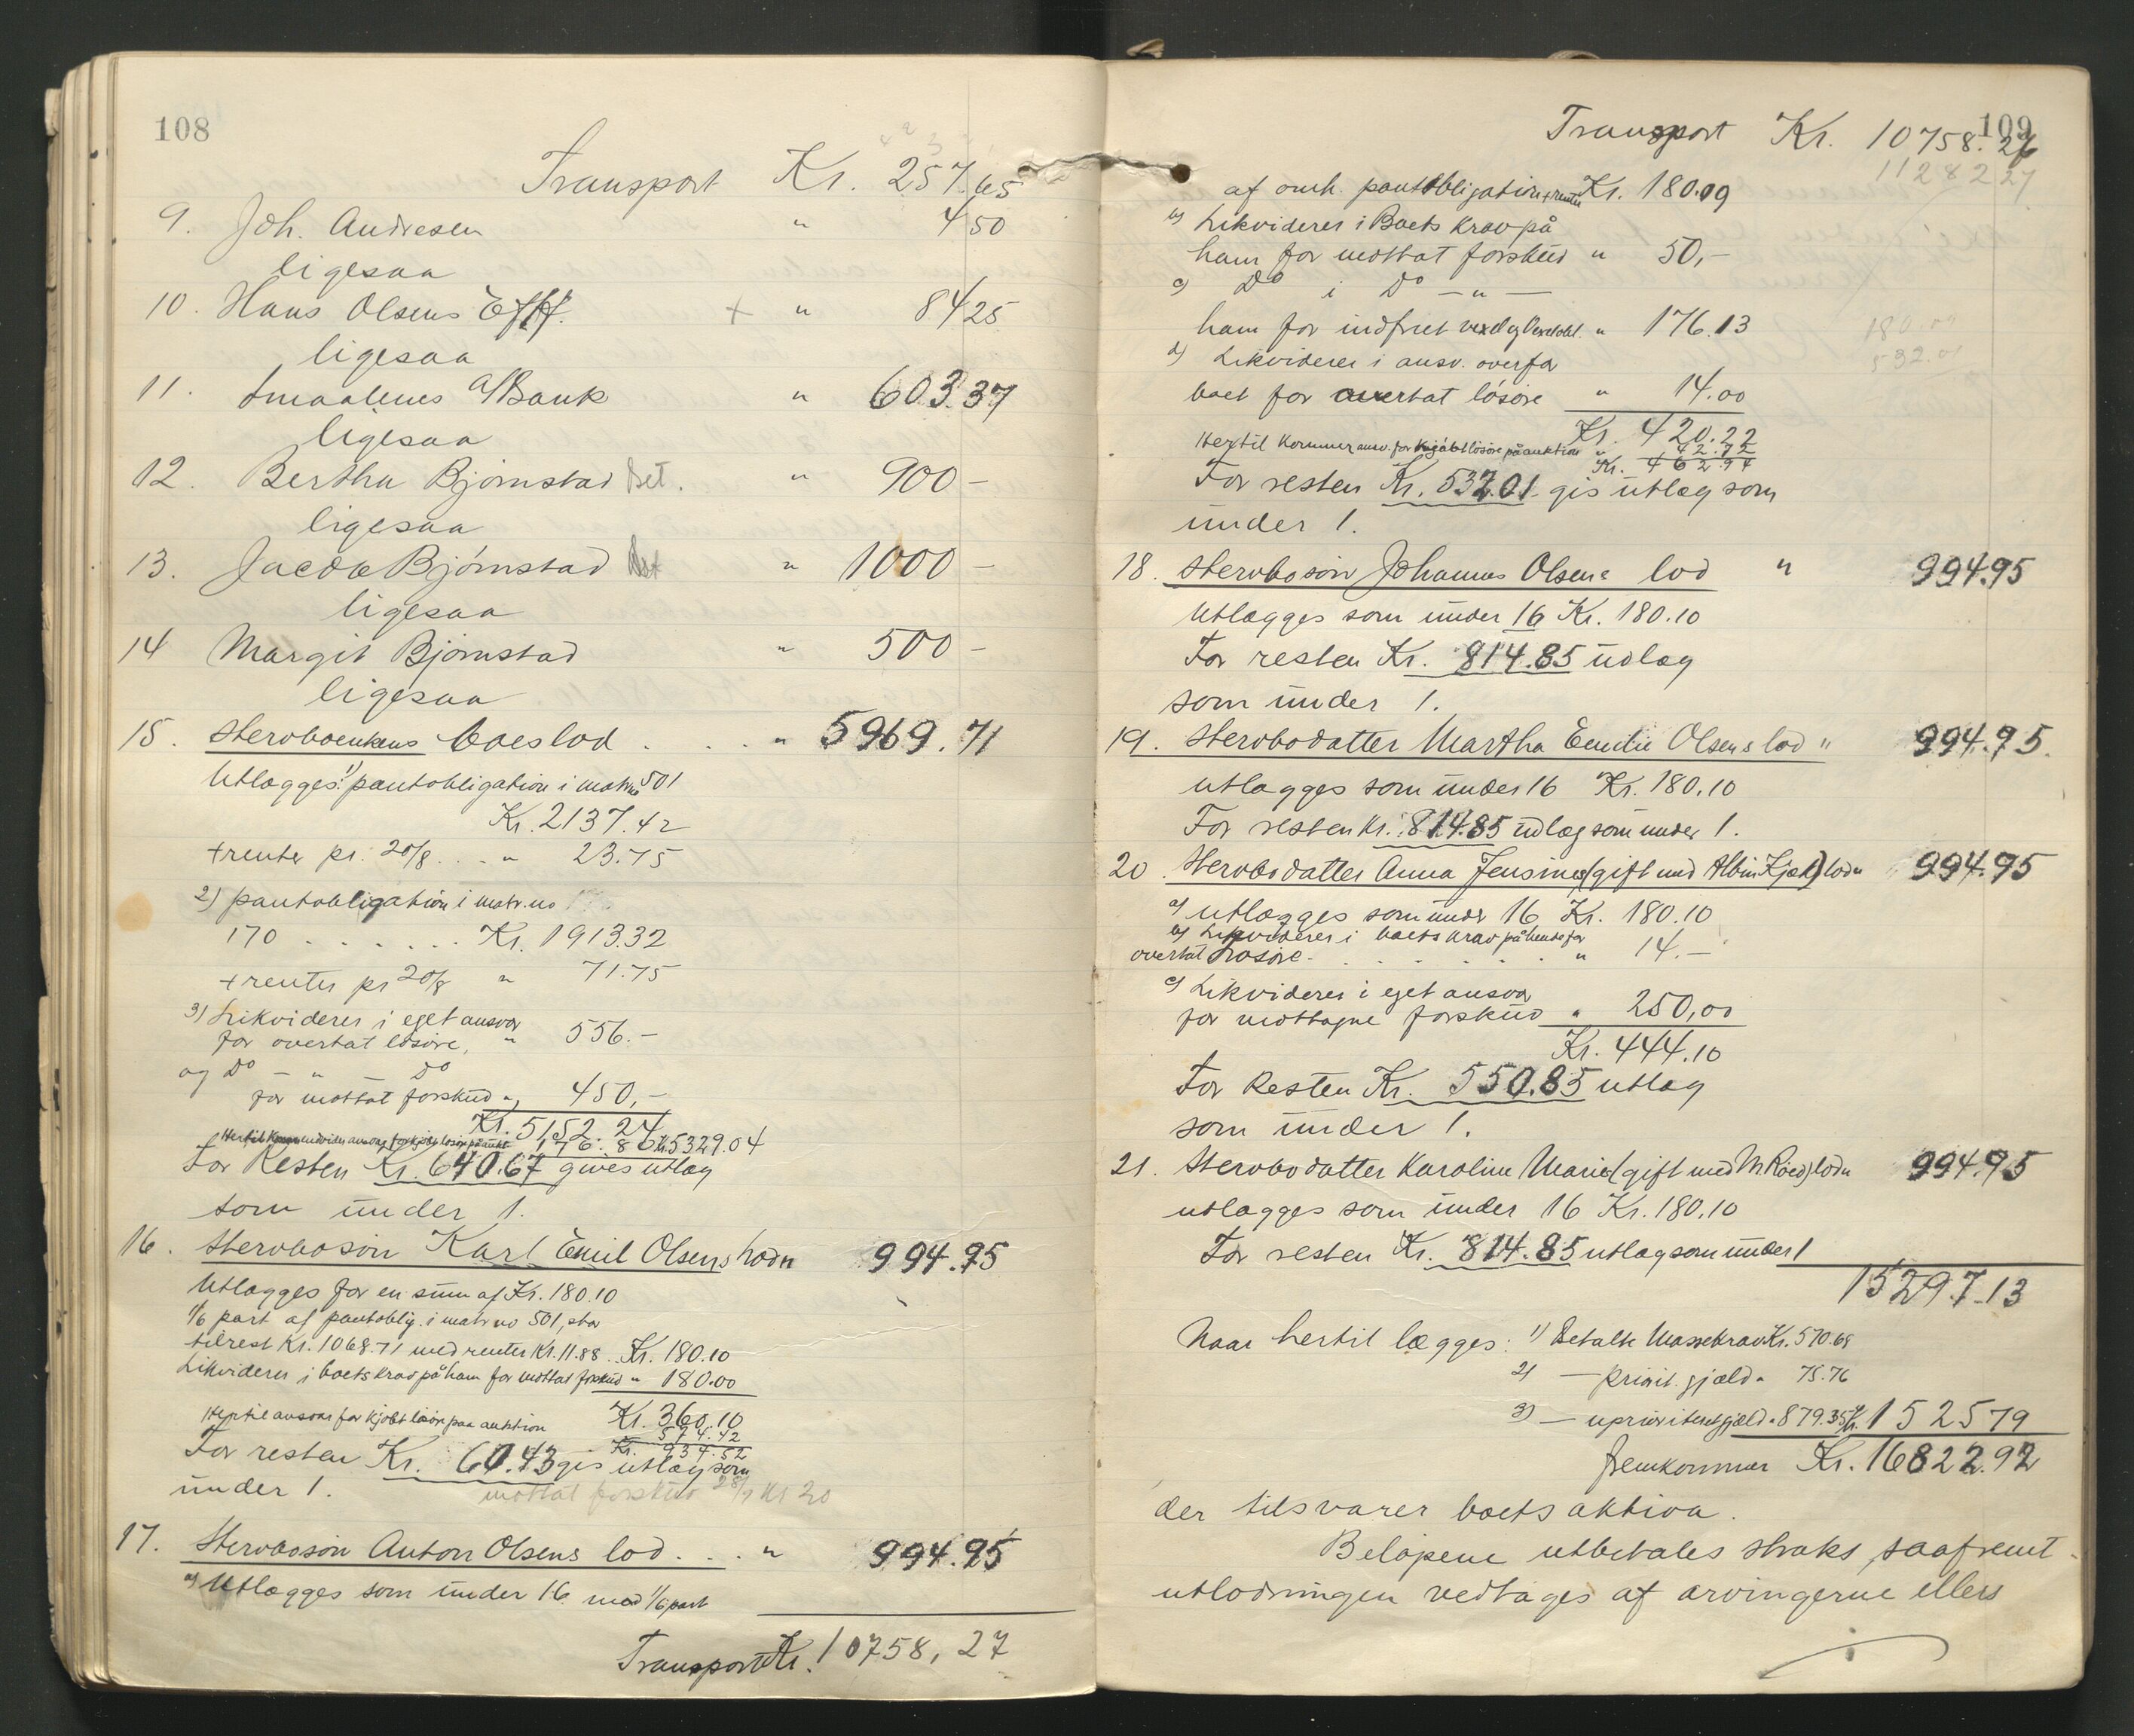 108
Transport Kr. 257.65
9. Joh. Andresen " 4 50
ligesaa
10. Hans Olsens Eftf. + " 84 25
ligesaa
11. Smaalenes A/Bank " 603.37
ligesaa
12. Bertha Bjørnstad " 900 -
ligesaa
13. Jacob Bjørnstad " 1000 -
ligesaa
14 Margit Bjørnstad " 500 -
ligesaa
15. Stervboenkens boeslod . . . " 5969.71
Utlægges: 1) pantobligation i matr no 501
Kr. 2137.42
+ renter pr. 20/8 . . . " 23.75
2) pantobligation i matr. no
170 . . . . . . . Kr. 1913.32
+ renter pr 20/8 " 71.75
3) Likvideres i eget ansvar
for overtat løsøre, " 556.-
og Do - " - Do
for mottat forskud " 450,-
Kr. 5152.24
176.80 Kr. 5329.04
For Resten Kr. 640.67 gives utlæg
som under 1.
16. Stervbosøn Karl Emil Olsens Lod " 994.95
Utlægges for en sum af Kr. 180.10
1/6 part af pantoblig. i matr no 501, stor
tilrest Kr. 1068.71 med renter Kr. 11.88 .. Kr. 180.10
Likvideres i boets krav på ham for mottat forskud " 180.00
Kr. 360.10
Hertil ansvar for kjøbt løsøre paa auktion 574.42
Kr. 934.52
For resten Kr. 60.43 gis utlæg som
under 1. mottat forskud 28/7 Kr 20
17. Stervbosøn Anton Olsens lod . . . " 994.95
a) Utlægges som under 16. med 1/6 part
Transport Kr. 10758,27
109
Transport Kr. 10758.26
11282 27
af omh. pantobligation + renter Kr. 180.09
b) Likvideres i Boets Krav på
ham for mottat forskud " 50,-
c) Do i Do - " -
ham for indfriet vexel og Vexelobl. " 176.13
180.09
532.01
d) Likvideres i ansv. overfor
boet for overtat løsøre " 14.00
Kr. 420.22
Hertil kommer ansv. for kjøbt løsøre på auktion " 42.72
Kr. 462.94
For resten Kr. 532.01 gis utlæg som
under 1.
18. Stervbosøn Johannes Olsens lod " 994.95
Utlægges som under 16 Kr. 180.10
For resten Kr. 814.85 udlæg
som under 1.
19. Stervbodatter Martha Emilie Olsens lod " 994.95.
utlægges som under 16 Kr. 180.10
For resten Kr. 814.85 udlæg som under 1.
20. Stervbodatter Anna Jensine (gift med Albin Kjøk) lod " 994.95
a) utlægges som under 16 Kr. 180.10
b) Likvideres i boets krav på hende for
overtat Løsøre . . . . . . . " 14.-
c) Likvideres i eget ansvar
for mottagne forskud " 250,00
Kr. 444.10
For Resten Kr. 550.85 utlæg
som under 1.
21. Stervbodatter Karoline Marie (gift med M. Roed) lod " 994.95
utlægges som under 16 Kr. 180.10
For resten Kr. 814.85 utlæg som under 1
15297.13
Naar hertil lægges: 1) betalte Massekrav Kr. 570.68
2) - priorit. gjæld " 75.76
3) - uprioriteret gjæld " 879.35 Kr. 1525 79
fremkommer Kr. 16822.92
der tilsvarer boets aktiva.
Beløpene utbetales straks, saafremt
utlodningen vedtages af arvingerne ellers